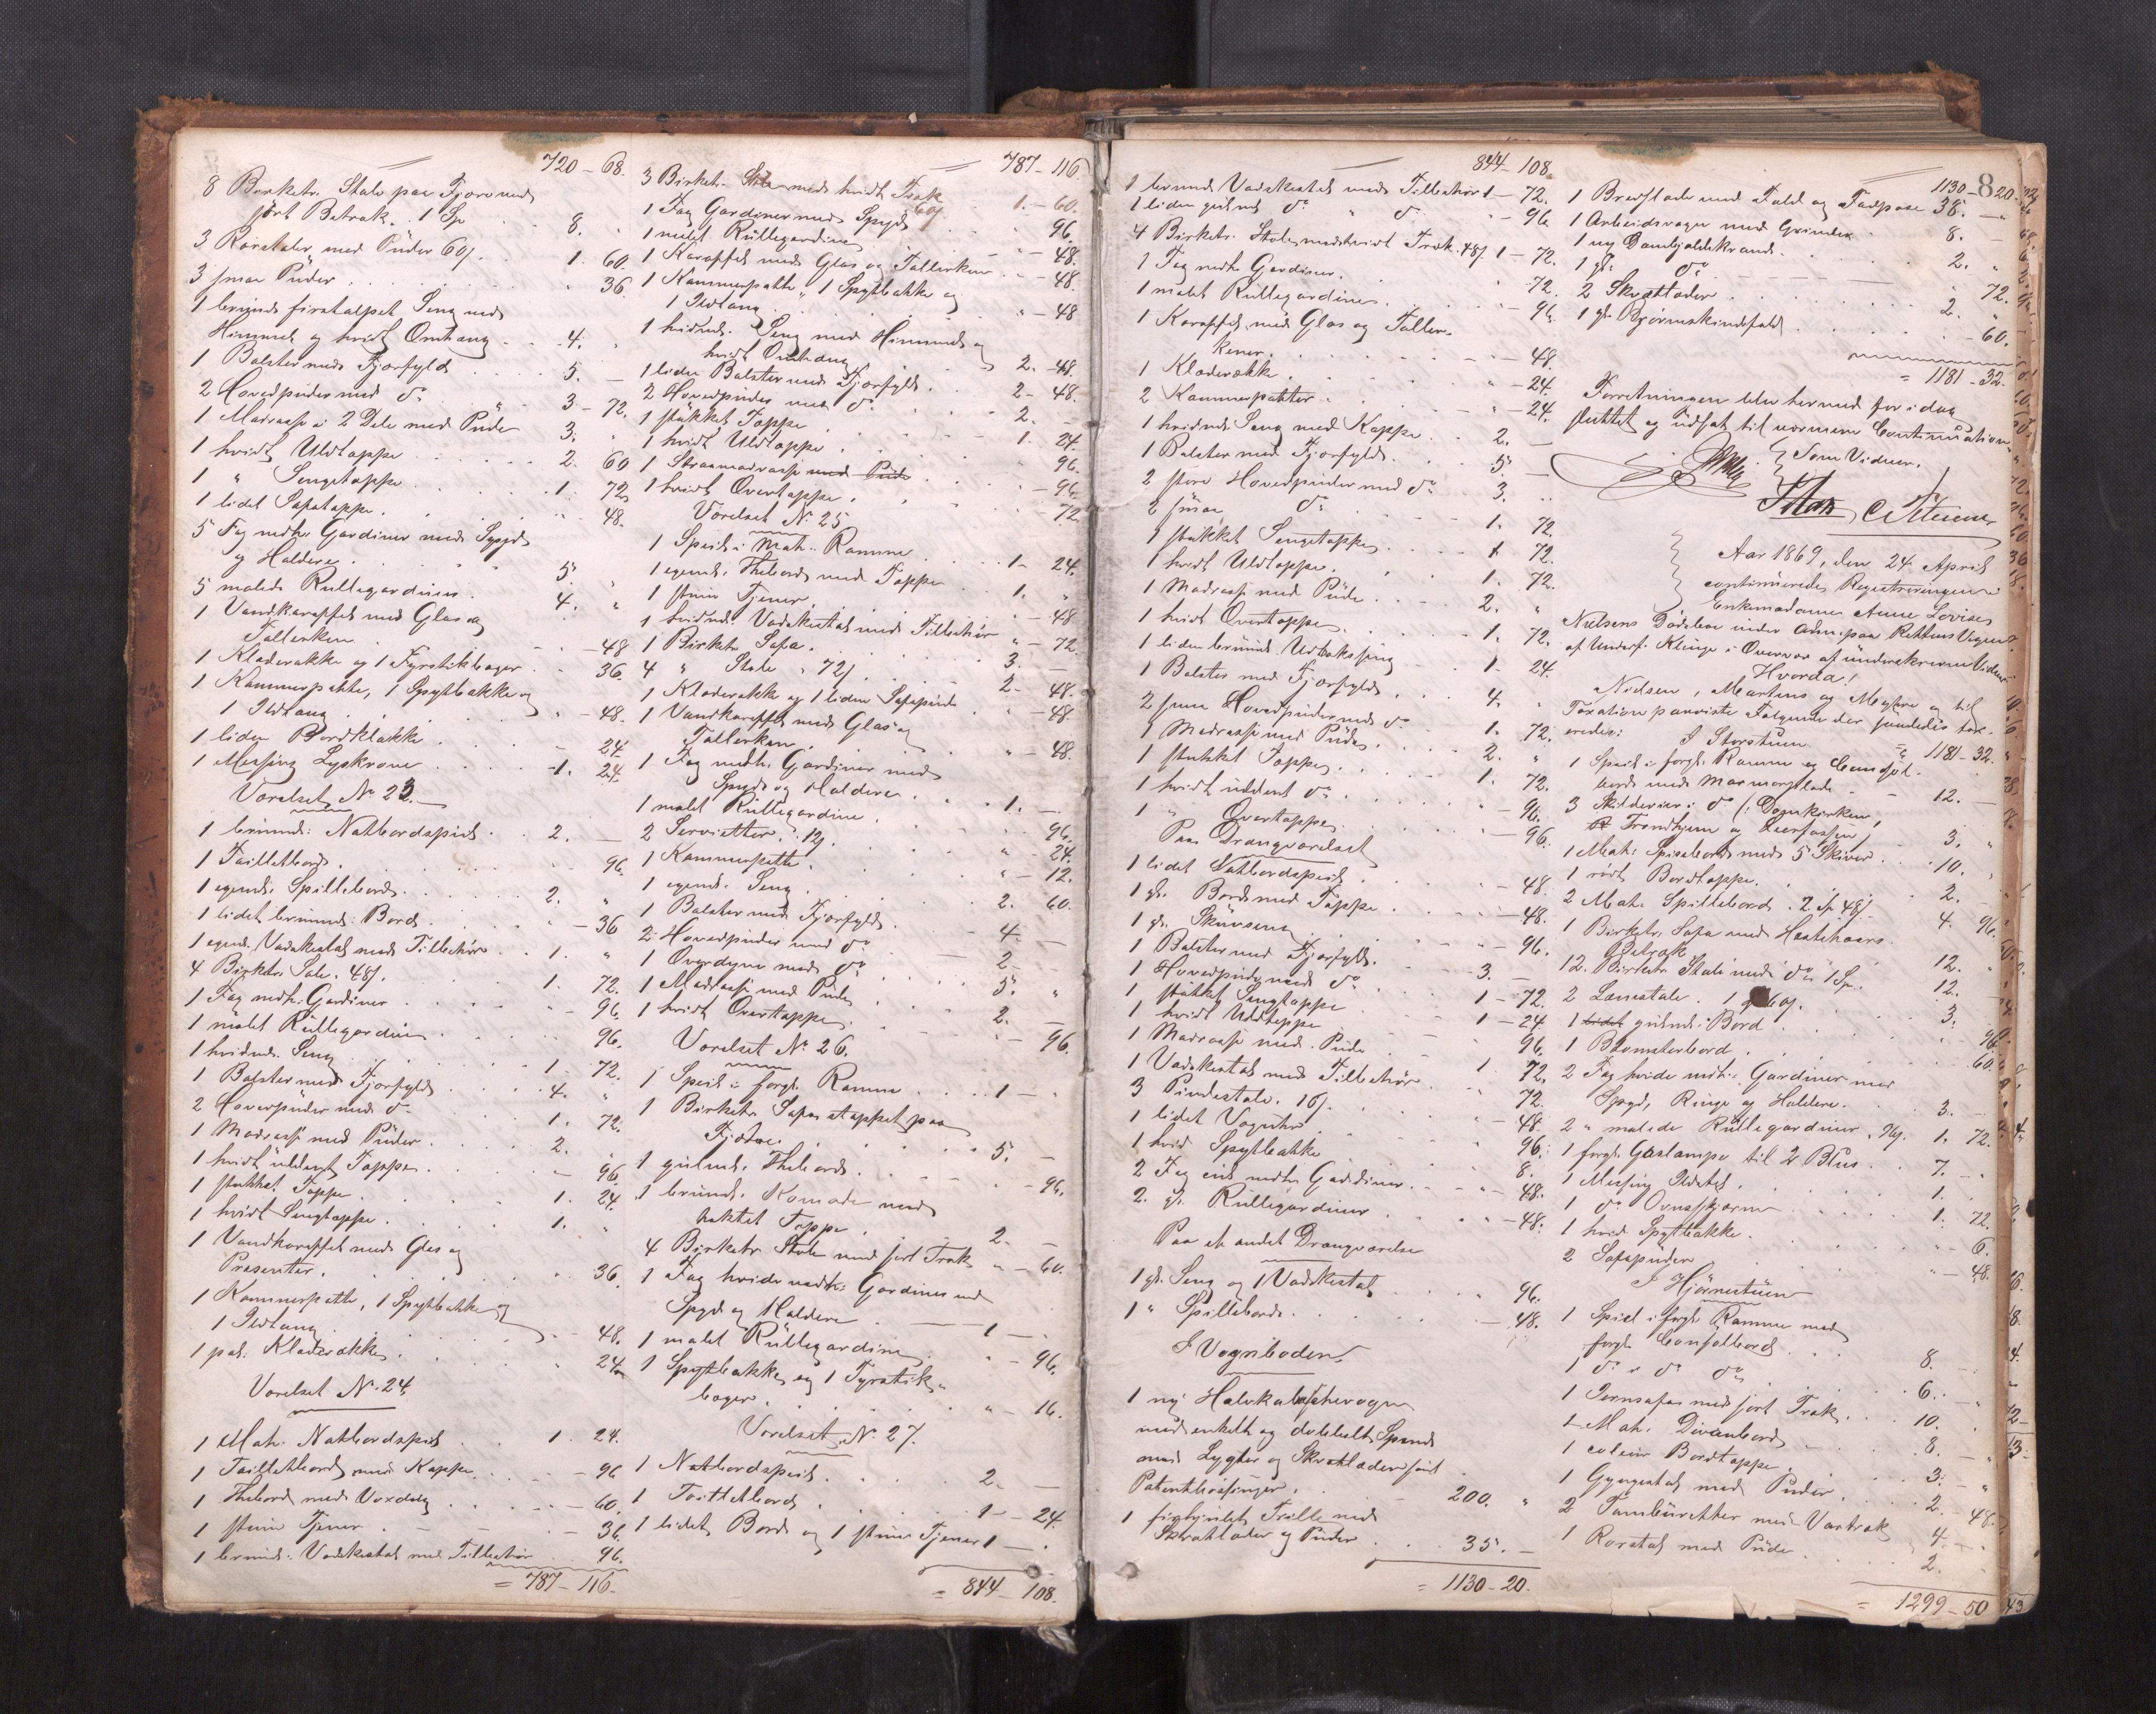 = 720 - 68.
8 Birketr. Stole paa Fjære med
sort Betræk. 1 Sp . . 8. "
3 Rørstoler med Puder 60s. . . 1. 60.
3 smaa Puder . . . . " 36
1 brunm. firstolpet Seng med
Himmel og hvidt Omhang . . 4. "
1 Bolster med Fjærfyld . . . 5. —
2 Hovedpuder med do . . 3 - 72.
1 Madrasse i 2 Dele med Pude 3. "
1 hvidt Uldtæppe . . . 2. 60
1 " Sengetæppe . . . 1. 72
1 lidet Sofatæppe . . . 48.
5 Fag nedh. Gardiner med Spyd
og Holdere . . . 5. "
5 malede Rullegardiner . . 4. "
1 Vandkaraffel med Glas og
Tallerken . . . - 48
1 Klæderække og 1 Fyrstikbæger . 36.
1 Kammerpotte, 1 Spytbakke og
1 Ildtang . . . " - 48.
1 liden Bordklokke . . . - 24
1 Messing Lyskrone . . . - 1. 24.
Værelset No 23.
1 brunm. Natbordspeil . . 2. —
1 Toiletbord . . . 96.
1 egem. Spillebord . . . 2. "
1 lidet brunm. Bord . . . - 36
1 egem. Vadskestol med Tilbehør . 1. "
4 Birktr. Stole. 48s. . . 1. 72.
1 Fag nedh. Gardiner . . - 96.
1 malet Rullegardin . . . 96.
1 hvidm. Seng . . . 1. 72.
1 Bolster med Fjærfyld . . 4. "
2 Hovedpuder med do . . 1. 72.
1 Madrasse med Puder . . 2. "
1 hvidt uldent Tæppe . . - 96.
1 stukket Tæppe . . . 1. 24.
1 hvidt Sengtæppe . . . 1. "
1 Vandkaraffel med Glas og
Presenter . . . " 36.
1 Kammerpotte, 1 Spytbakke og
1 Ildtang . . . - 48.
1 pol. Klæderække . . . " 24
Værelset No 24.
1 Mah. Natbordspeil . . 1. 24.
1 Toiletbord med Kappe . . - 96
1 Thebord med Voxdug . . - 60.
1 stum Tjener . - - - 36
1 brunm. Vadskestol med Tilbehør 96.
= 787 - 116.
= 787 - 116
3 Birketr. Stole med hvidt Træk 60s . . 1. - 60.
1 Fag Gardiner med Spyd . . 96.
1 malet Rullegardin . . - 48.
1 Karaffel med Glas og Tallerken . - 48.
1 Kammerpotte, 1 Spytbakke og
1 Ildtang . . . " - 48
1 hvidm. Seng med Himmel og
hvidt Omhang . . . 2. - 48.
1 liden Bolster med Fjærfyld . 2 - 48.
2 Hovedpuder med do . . 2. —
1 stukket Tæppe . . . 1. 24.
1 hvidt Uldtæppe . . . " 96.
1 Straamadrasse med Pude . . - 96.
1 hvidt Overtæppe . . . - 72
Værelset No 25
1 Speil i Mah. Ramme . . 1 - 24.
1 egem. Thebord med Tæppe . . 1. "
1 stum Tjener . . . - 48
1 hvidm. Vadskestol med Tilbehør " - 72.
1 Birketr. Sofa . . . 3. —
4 " Stole 72s . . 2 - 48.
1 Klæderække og 1 liden Sofapude " - 48
1 Vandkaraffel med Glas og
Tallerken . . . " - 48.
1 Fag nedh. Gardiner med
Spyd og Holdere . . . 1. —
1 malet Rullegardin . . . 96.
2 Servietter. 12s. . . " - 24.
1 Kammerpotte . . . " - 12.
1 egem. Seng . . . 2. 60.
1 Bolster med Fjærfyld . . 4. —
2 Hovedpuder med do . . 2 —
1 Overdyne med do . . 5. "
1 Madrasse med Pude . . 2. —
1 hvidt Overtæppe . . . - 96.
Værelset No 26.
1 Speil i forgl. Ramme . . 1 — .
1 Birketr. Sofa stoppet paa
Fjædre . . . 5. —
1 gulm. Thebord . . . - 96.
1 brunm. Komode med
hæklet Tæppe . . . 2. —
4 Birketr. Stole med sort Træk " - 60.
1 Fag hvide nedh. Gardiner med
Spyd og Holdere . . . 1 — .
1 malet Rullegardin . . " - 96.
1 Spytbakke og 1 Fyrstik-
bæger . . . " - 16.
Værelset No 27.
1 Natbordspeil . . . 2. —
1 Toiletbord . . . 1 - 24.
1 lidet Bord og 1 stum Tjener 1 — .
= 844 - 108.
= 844 - 108.
1 brunm. Vadskestol med Tilbehør 1 - 72.
1 liden gulm. do " do . - 96
4 Birketr. Stole med hvidt Træk. 48s 1 - 72.
1 Fag nedh. Gardiner . . - 72.
1 malet Rullegardin . . - 96.
1 Karaffel med Glas og Taller-
kener . . . - 48.
1 Klæderække . . . " - 24.
2 Kammerpotter . . . " - 24.
1 hvidm. Seng med Kappe . . 2. —
1 Bolster med Fjærfyld . . 5 —
2 store Hovedpuder med do . 3. "
2 smaa do . . 1. 72.
1 stukket Sengetæppe . . 1. 72.
1 hvidt Uldtæppe . . . 1. 72.
1 Madrasse med Pude . . 2. "
1 hvidt Overtæppe . . . 1. 72.
1 liden brunm. Udtræksseng . 1 - 24.
1 Bolster med Fjærfyld . . 4. "
2 smaa Hovedpuder med do . 1. 72.
1 Madrasse med Pude . . 2. "
1 stukket Tæppe . . . 1. 72.
1 hvidt uldent do . . . - 96.
1 " Overtæppe . . . - 96.
Paa Drengværelset
1 lidet Natbordspeil . . - 48.
1 gl. Bord med Tæppe . . - 48.
1 gl. Skuvseng . . . " - 96.
1 Bolster med Fjærfyld . . 3. —
1 Hovedpude med do . . 1 - 72.
1 stukket Sengtæppe . . 1 - 24.
1 hvidt Uldtæppe . . . 96.
1 Madrasse med Pude . . 1 72.
1 Vadskestol med Tilbehør . 72.
3 Pindestole. 16s. . . 48.
1 lidet Væguhr . . . 96.
1 hvid Spytbakke . . . 8.
2 Fag nedh. Gardiner . . - 48.
2 gl. Rullegardiner . . - 48.
Paa et andet Drengværelse
1 gl. Seng og 1 Vadskestol . . 96.
1 " Spillebord . . . - 48.
I Vognboden.
1 ny Halvkaleschevogn
med enkelt og dobbelt Spænd
med Lygter og Skvætlæder samt
Patentbøsninger . . . 200. "
1 firhjulet Trille med
Skvætlæder og Puder . . 35. —
= 1130 - 20.
8
= 1130 - 20.
1 Bredslæde med Fæld og Fodpose 38. — "
1 Arbeidsvogn med Grinder . 8. —
1 ny Dombjældekrands . . 2. "
1 gl. do . . 72.
2 Skvætlæder . . . 2. "
1 gl. Bjørneskindsfæld . . - 60.
= 1181 - 32.
Forretningen blev hermed for idag
sluttet og udsat til nærmere Continuation.
Som Vidner.
Aar 1869, den 24 April
continueredes Registreringen i
Enkemadame Anne Lovise
Nielsens Dødsbo under Adm. paa Rettens Vegne
af Underf. Klinge i Overvær af underskrevne Vidner
Hvorda!
Nielsen, Martens og Meyer og til
Taxation paaviste Følgende der saaledes tax-
eredes: = 1181 - 32.
I Storstuen
1 Speil i forgl. Ramme og Consol-
bord med Marmorplade . . 12. —
3 Skilderier i do (: Domkirken,
Trondhjem og Leerfossen) . 3. "
1 Mah. Spisebord med 5 Skiver . . 10. "
1 rødt Bordtæppe . . . 2. —
2 Mah. Spillebord. 2 Sp 48s . 4. 96.
1 Birketr. Sofa med Hestehaars
Betræk . . . 12. "
12 Birketr. Stole med do 1 Sp. . 12. "
2 Lænestole. 1 Sp 60s. . . 3. "
1 lidet gulm. Bord . . . 96.
1 Blomsterbord . . . 60.
2 Fag hvide nedh. Gardiner med
Spyd, Ringe og Holdere . . 3. —
2 " malede Rullegardiner. 96s. 1. 72.
1 forgl. Gaslampe til 2 Blus . . 7. - .
1 Messing Ildstel . . . 1. "
1 do Ovnsskjærm . . . 1. 72.
1 hvid Spytbakke . . . " - 6.
2 Sofapuder . . . " - 48.
I Hjørnestuen
1 Speil i forgl. Ramme med
forgl. Consolbord . . . 8. —
1 do i do do . . 6. —
1 Jernsofa med sort Træk . . 10. "
1 Mah. Divanbord . . . 8. —
1 couleur Bordtæppe . . . 3. "
1 Gyngestol med Puder . . 2. - 48.
2 Tambouretter med Voxtræk 4. —
1 Rørstol med Pude . . 2. "
= 1299 - 50